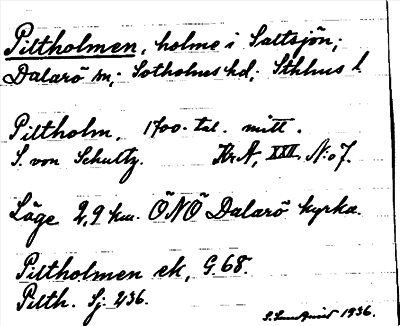 Piltholmen, holme i Saltsjön;
Dalarö sn; Sotholms hd; Sthlms l.
Piltholm. 1700-tal. mitt.
S. von Schultz. Kr A, XXII. N:o 7.
Läge 2,9 km. ÖNÖ Dalarö kyrka.
Piltholmen ek, G.68.
Pilth. Sj: 236.
1936.